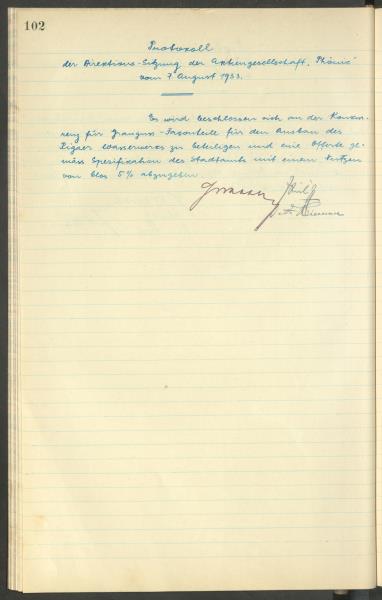 102
Protokoll
der Direktions-Sitzung der Aktiengesellschaft „Phönix"
vom 7 August 1933.
Es wird beschlossen sich an der Konkur-
renz für Grauguss-Fasonteile für den Ausbau des
Rigaer Wasserwerks zu beteiligen und eine Offerte ge-
mäss Spezifikation des Stadtamts mit einem Nutzen
von blos 5% abzugeben.